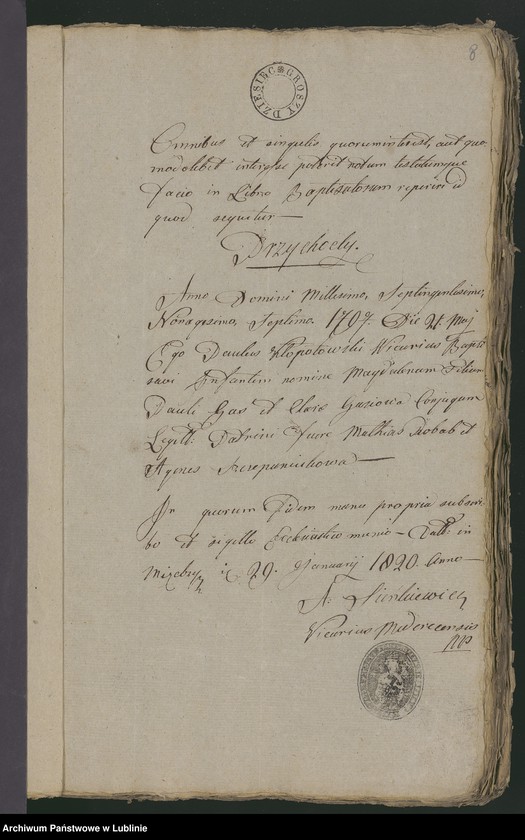 8
DZIESIĘC GROSZY
Omnibus et singulis quorum interest, aut quo
modolibet interesse poterit notum testatumque
facio in Libro Baptisatorum reperiri id
quod sequitur —
Przychody.
Anno Domini Millesimo, Septingentesimo,
Nonagesimo, Septimo. 1797. Die 21. Maj
Ego Paulus Kłopotowski Vicarius Bapti
savi Infantem nomine Magdalenam Filiam
Pauli Gas et Clarae Gasiowa Conjugum
Legitt: Patrini fuere Mathias et
Agnes Szczepaniukowa —
In quorum Fidem manu propria subscri
bo et sigillo Ecclesiastico munio — Datt: in
29. Januarij 1820. Anno —
A: Sienkiewicz
Vicarius
mp
Archiwum Państwowe w Lublinie